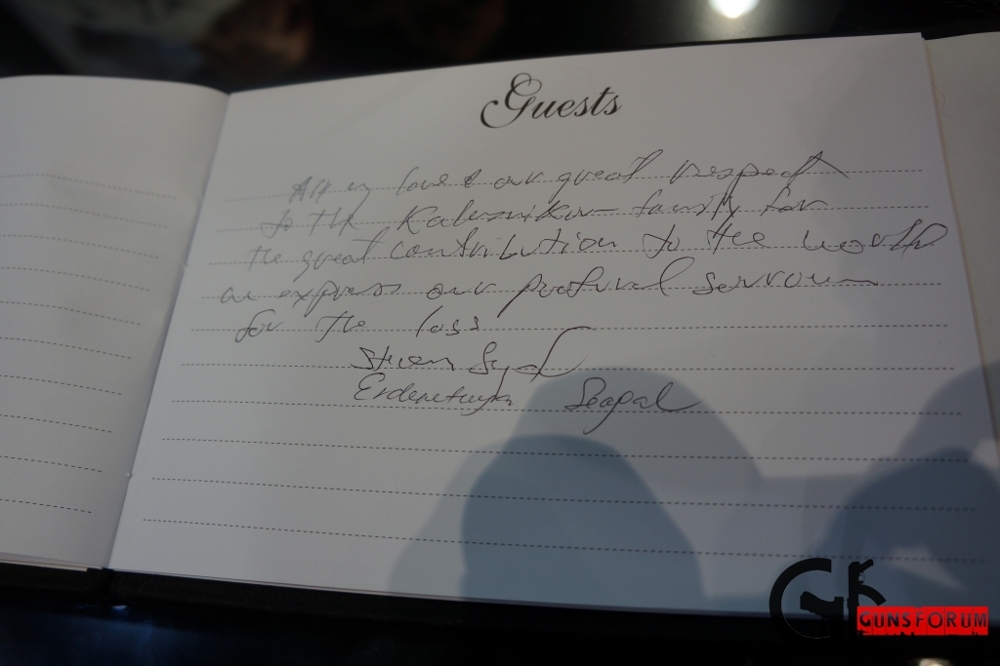 Guests
All my love & our great respect
to the Kalesnikov family for
the great contribution to the world
we express our profound sorrow
for the loss
Steven Segal
Erdenetuya Seagal
GUNSFORUM